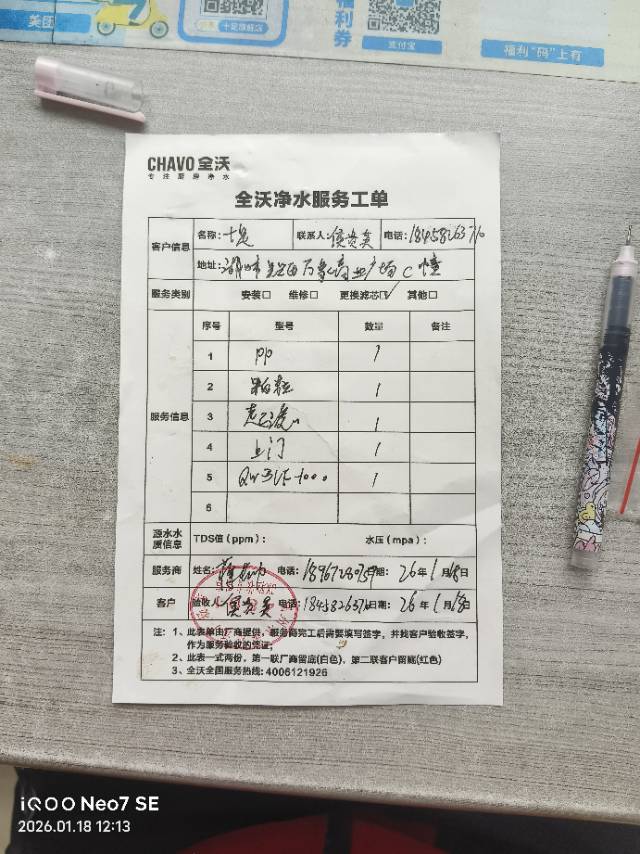 美团
十足旗舰店
福利券
支付宝
福利“码”上有
CHAVO 全沃
专注厨房净水
全沃净水服务工单
客户信息
名称：十足 联系人：侯贵美 电话：18458263710
地址：
服务类别 安装□ 维修□ 更换滤芯☑ 其他□
服务信息
序号 型号 数量 备注
1 PP 1
2 颗粒 1
3 1
4 上门 1
5 1
6
源水水质信息 TDS值（ppm）： 水压（mpa）：
服务商 姓名： 电话： 日期：26年1月18日
客户 验收人：侯贵美 电话： 日期：26年1月18日
注：1、此表单由厂商提供，服务商完工后需要填写签字，并找客户验收签字，
作为服务验收的凭证；
2、此表一式两份，第一联厂商留底(白色)，第二联客户留底(红色)
3、全沃全国服务热线：4006121926
iQOO Neo7 SE
2026.01.18 12:13